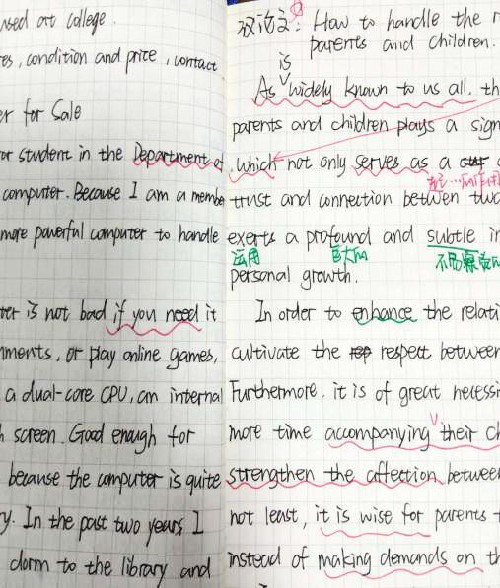 used at college.
, condition and price, contact
for Sale
student in the Department of
computer. Because I am a membe
more powerful computer to handle
is not bad if you need it
or play online games,
a dual-core CPU, an internal
screen. Good enough for
because the computer is quite
. In the past two years I
dorm to the library and
议论文: How to handle the
parents and children.
is
As widely known to us all. th
parents and children plays a sign
which not only serves as a
trust and connection betwen two
exerts a profound and subtle in
运用 巨大的 不易察觉的
personal growth.
In order to enhance the relati
cultivate the respect between
Furthermore, it is of great necessi
more time accompanying their ch
strengthen the affection betwee
not least, it is wise for parents
instead of making demands on th